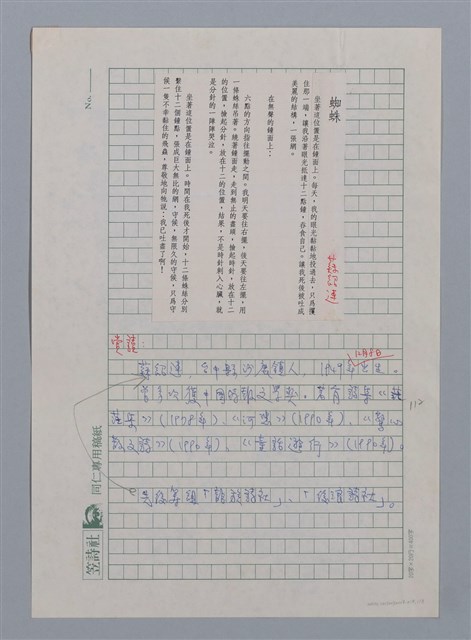 蜘蛛
蘇紹連
坐著這位置是在鐘面上。每天，我的眼光黏黏地投過去，只為攫
住那一端，讓我沿著眼光抵達十二點鐘，吞食自己。讓我死後變吐成
美麗的結構，一張網。
在無聲的鐘面上：
六點的方向指往擺動之間。我明天要往右擺，後天要往左擺，用
一條蛛絲吊著。繞著鐘面走，走到無止的盡頭，撿起時針，放在十二
的位置，撿起分針，放在十二的位置，結果，不是時針刺入心臟，就
是分針的一陣陣哭泣。
坐著這位置是在鐘面上。時間在我死後才開始，十二條蛛絲分別
繫住十二個鐘點，張成巨大無比的網，守候，無限久的守候，只為守
候一隻不幸黏住的飛蟲，尊敬地向牠說：我已吐盡了啊！
12月8日
蘇紹連，台中縣沙鹿鎮人，1949年出生。
曾多次獲中國時報文學獎。著有詩集《茫
茫集》（1978年）、《河悲》（1990年）、《驚心
散文詩》（1990年）、《童話遊行》（1990年）。
先後籌組「龍族詩社」、「後浪詩社」。
112
No.
笠詩社
同仁專用稿紙